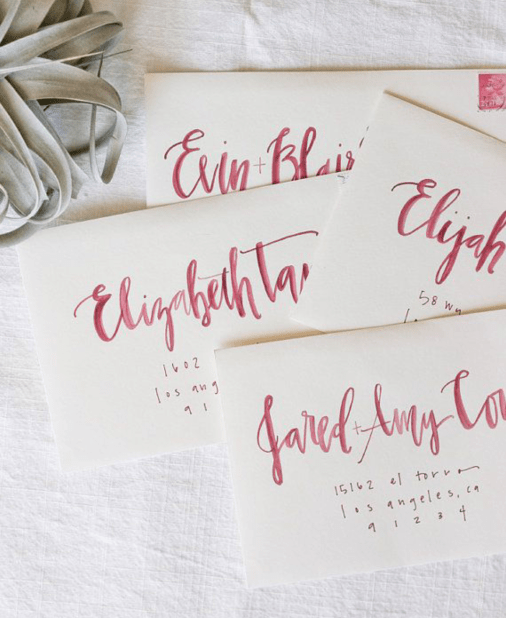 Evin + Blair
Elijah
58
Elizabeth
1602
los ang
91
Jared + Amy
15162 el torro
los angeles, ca
91234